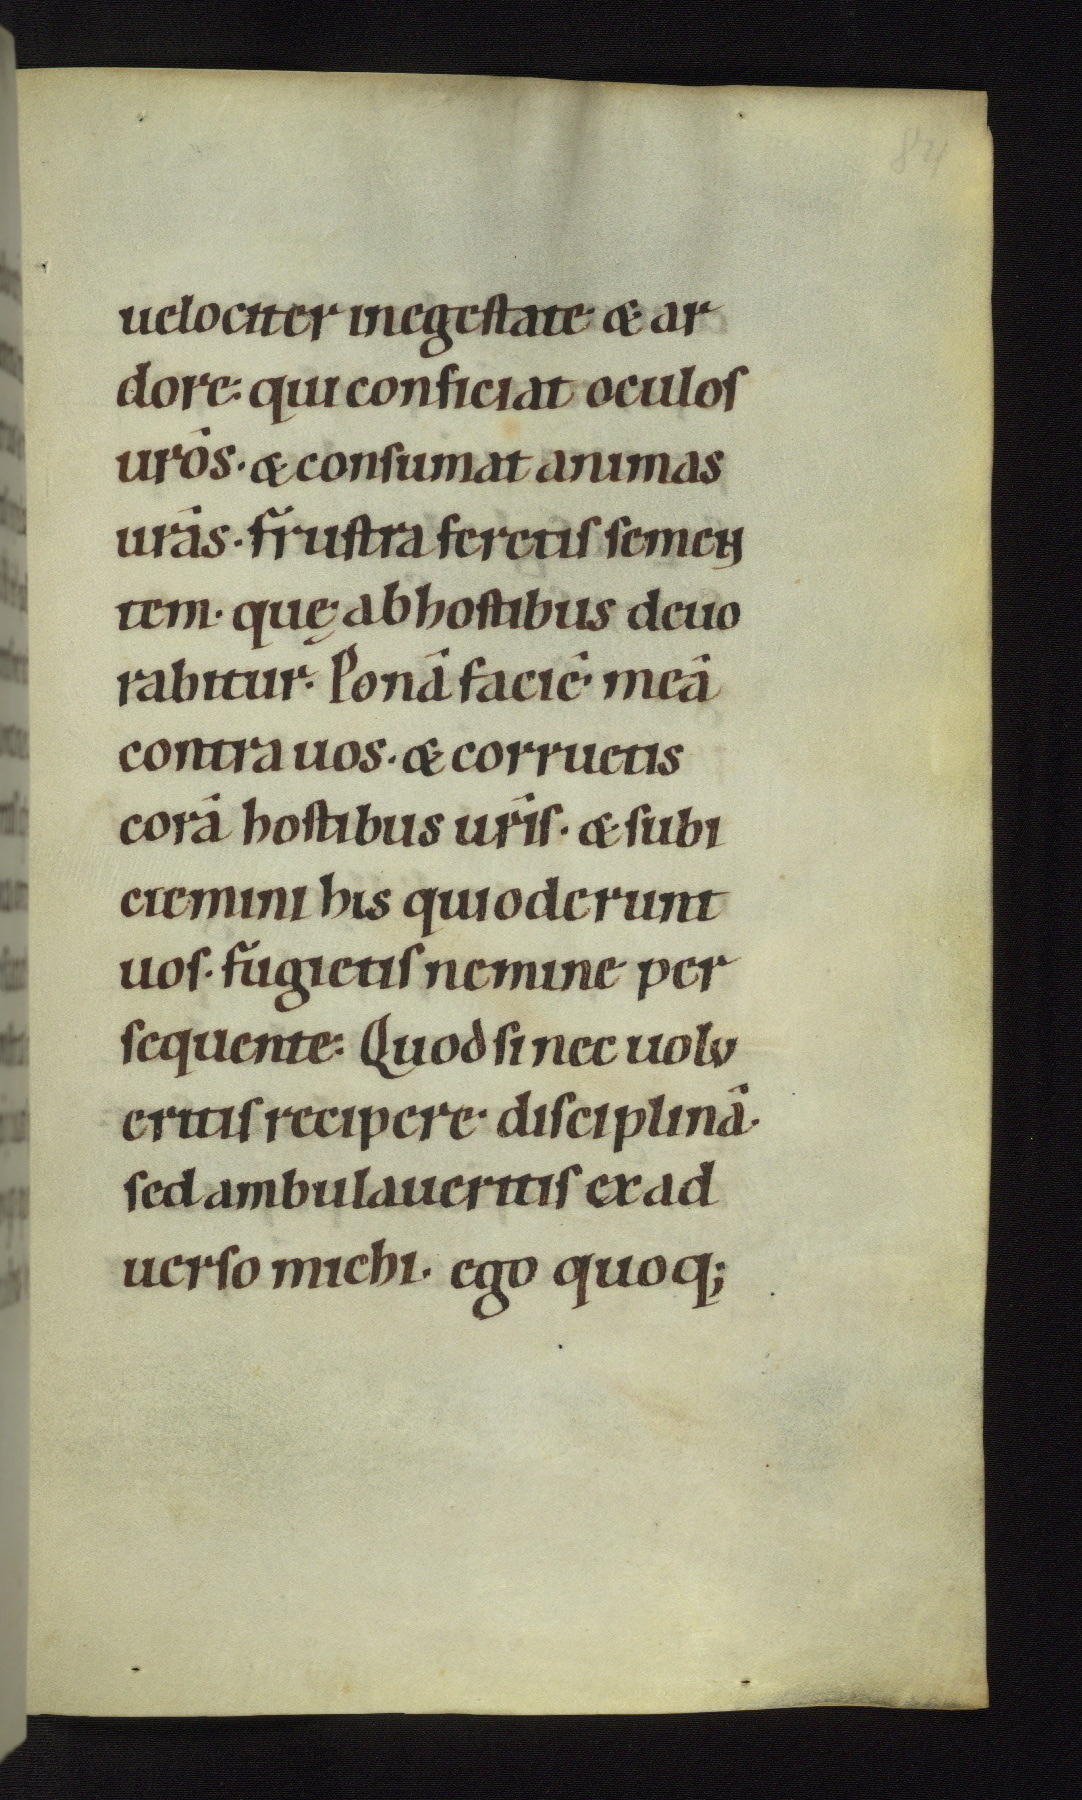 84
uelociter in egestate & ar
dore. qui conficiat oculos
ur̄os. & consumat animas
ur̄as. frustra seretis semen
tem. quę ab hostibus deuo
rabitur. Ponā faciē meā
contra uos. & corruetis
corā hostibus ur̄is. & subi
ciemini his qui oderunt
uos. fugietis nemine per
sequente. Quod si nec uolu
eritis recipere disciplinā.
sed ambulaueritis ex ad
uerso michi. ego quoq;